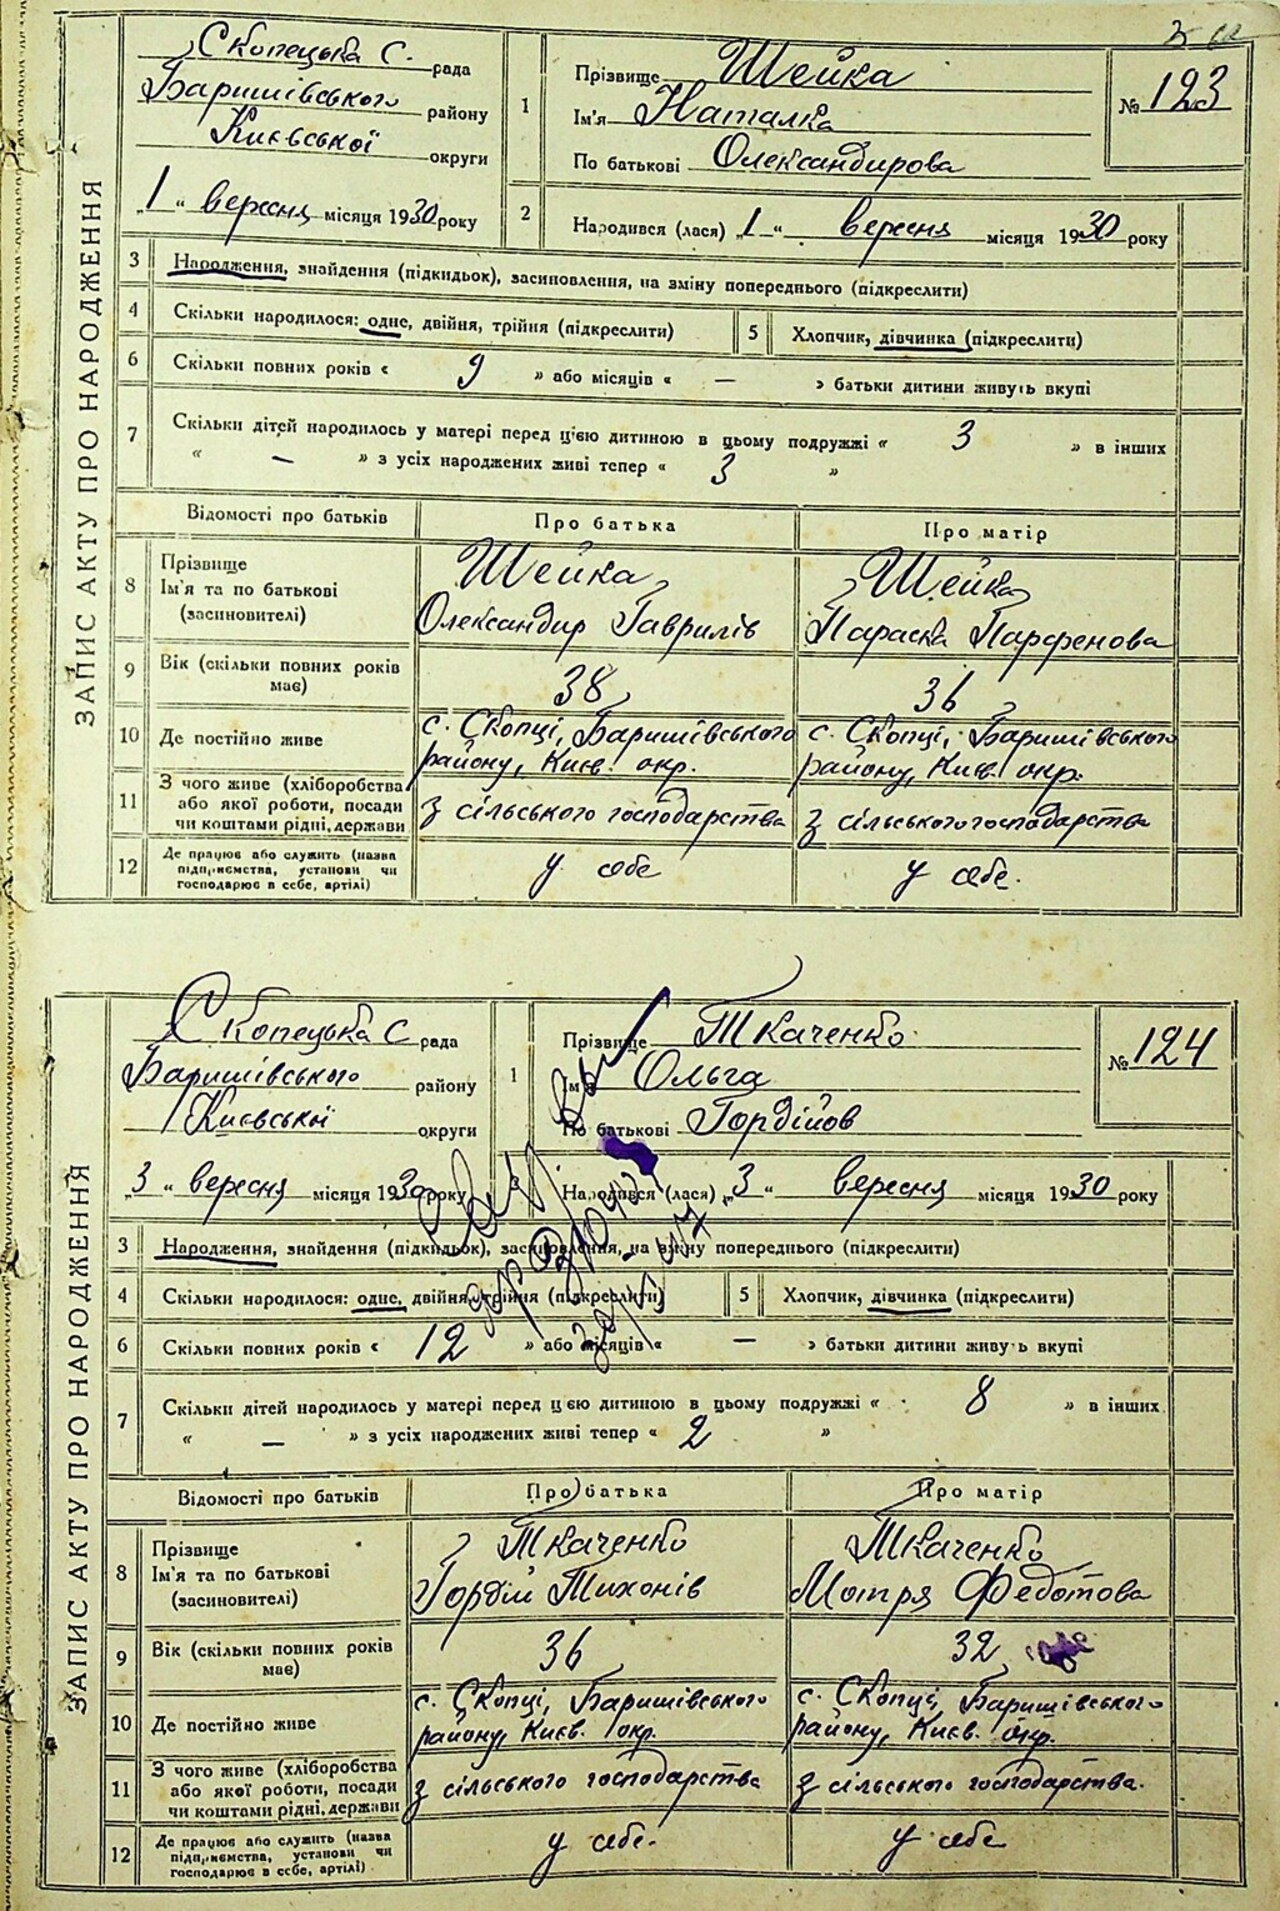 ЗАПИС АКТУ ПРО НАРОДЖЕННЯ
Скопецька С. рада
Баришівського району
Київської округи
„1“ вересня місяця 1930 року
1 Прізвище Шейка
Ім'я Наталка
По батькові Олександирова
№ 123
2 Народився (лася) „1“ вересня місяця 1930 року
3 Народження, знайдення (підкидьок), засиновлення, на зміну попереднього (підкреслити)
4 Скільки народилося: одне, двійня, трійня (підкреслити) 5 Хлопчик, дівчинка (підкреслити)
6 Скільки повних років « 9 » або місяців « — » батьки дитини живуть вкупі
7 Скільки дітей народилось у матері перед цією дитиною в цьому подружжі « 3 » в інших
« — » з усіх народжених живі тепер « 3 »
Відомості про батьків Про батька Про матір
8 Прізвище Ім'я та по батькові (засиновителі)
Шейка Олександир Гаврилів
Шейка Параска Парфенова
9 Вік (скільки повних років має) 38 36
10 Де постійно живе
с. Скопці, Баришівського району, Києв. окр.
с. Скопці, Баришівського району, Києв. окр.
11 З чого живе (хліборобства або якої роботи, посади чи коштами рідні, держави
з сільського господарства
з сільського господарства
12 Де працює або служить (назва підприємства, установи чи господарює в себе, артілі)
у себе
у себе.
ЗАПИС АКТУ ПРО НАРОДЖЕННЯ
Скопецька С рада
Баришівського району
Київської округи
„3“ вересня місяця 1930 року
1 Прізвище Ткаченко
Ім'я Ольга
По батькові Гордійов
№ 124
Народився (лася) „3“ вересня місяця 1930 року
3 Народження, знайдення (підкидьок), засиновлення, на зміну попереднього (підкреслити)
4 Скільки народилося: одне, двійня, трійня (підкреслити) 5 Хлопчик, дівчинка (підкреслити)
6 Скільки повних років « 12 » або місяців « — » батьки дитини живуть вкупі
7 Скільки дітей народилось у матері перед цією дитиною в цьому подружжі « 8 » в інших
« — » з усіх народжених живі тепер « 2 »
Відомості про батьків Про батька Про матір
8 Прізвище Ім'я та по батькові (засиновителі)
Ткаченко Гордій Тихонів
Ткаченко Мотря Федотова
9 Вік (скільки повних років має) 36 32
10 Де постійно живе
с. Скопці, Баришівського району, Києв. окр.
с. Скопці, Баришівського району, Києв. окр.
11 З чого живе (хліборобства або якої роботи, посади чи коштами рідні, держави
з сільського господарства
з сільського господарства.
12 Де працює або служить (назва підприємства, установи чи господарює в себе, артілі)
у себе.
у себе